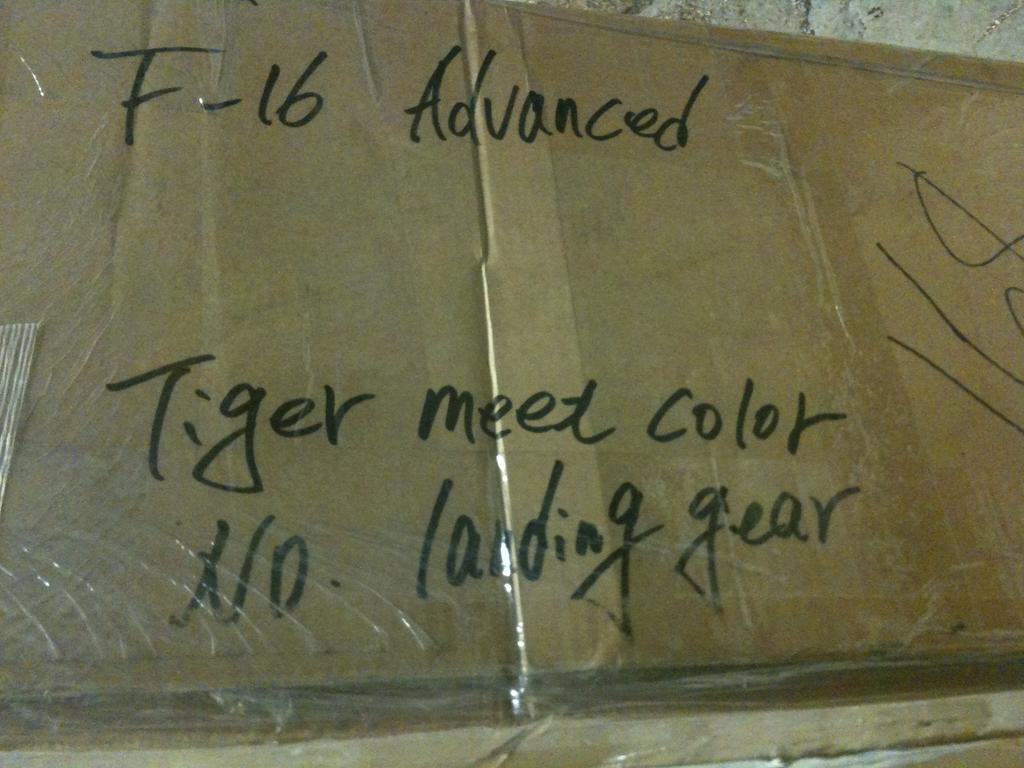 F-16 Advanced
Tiger meet color
NO. landing gear